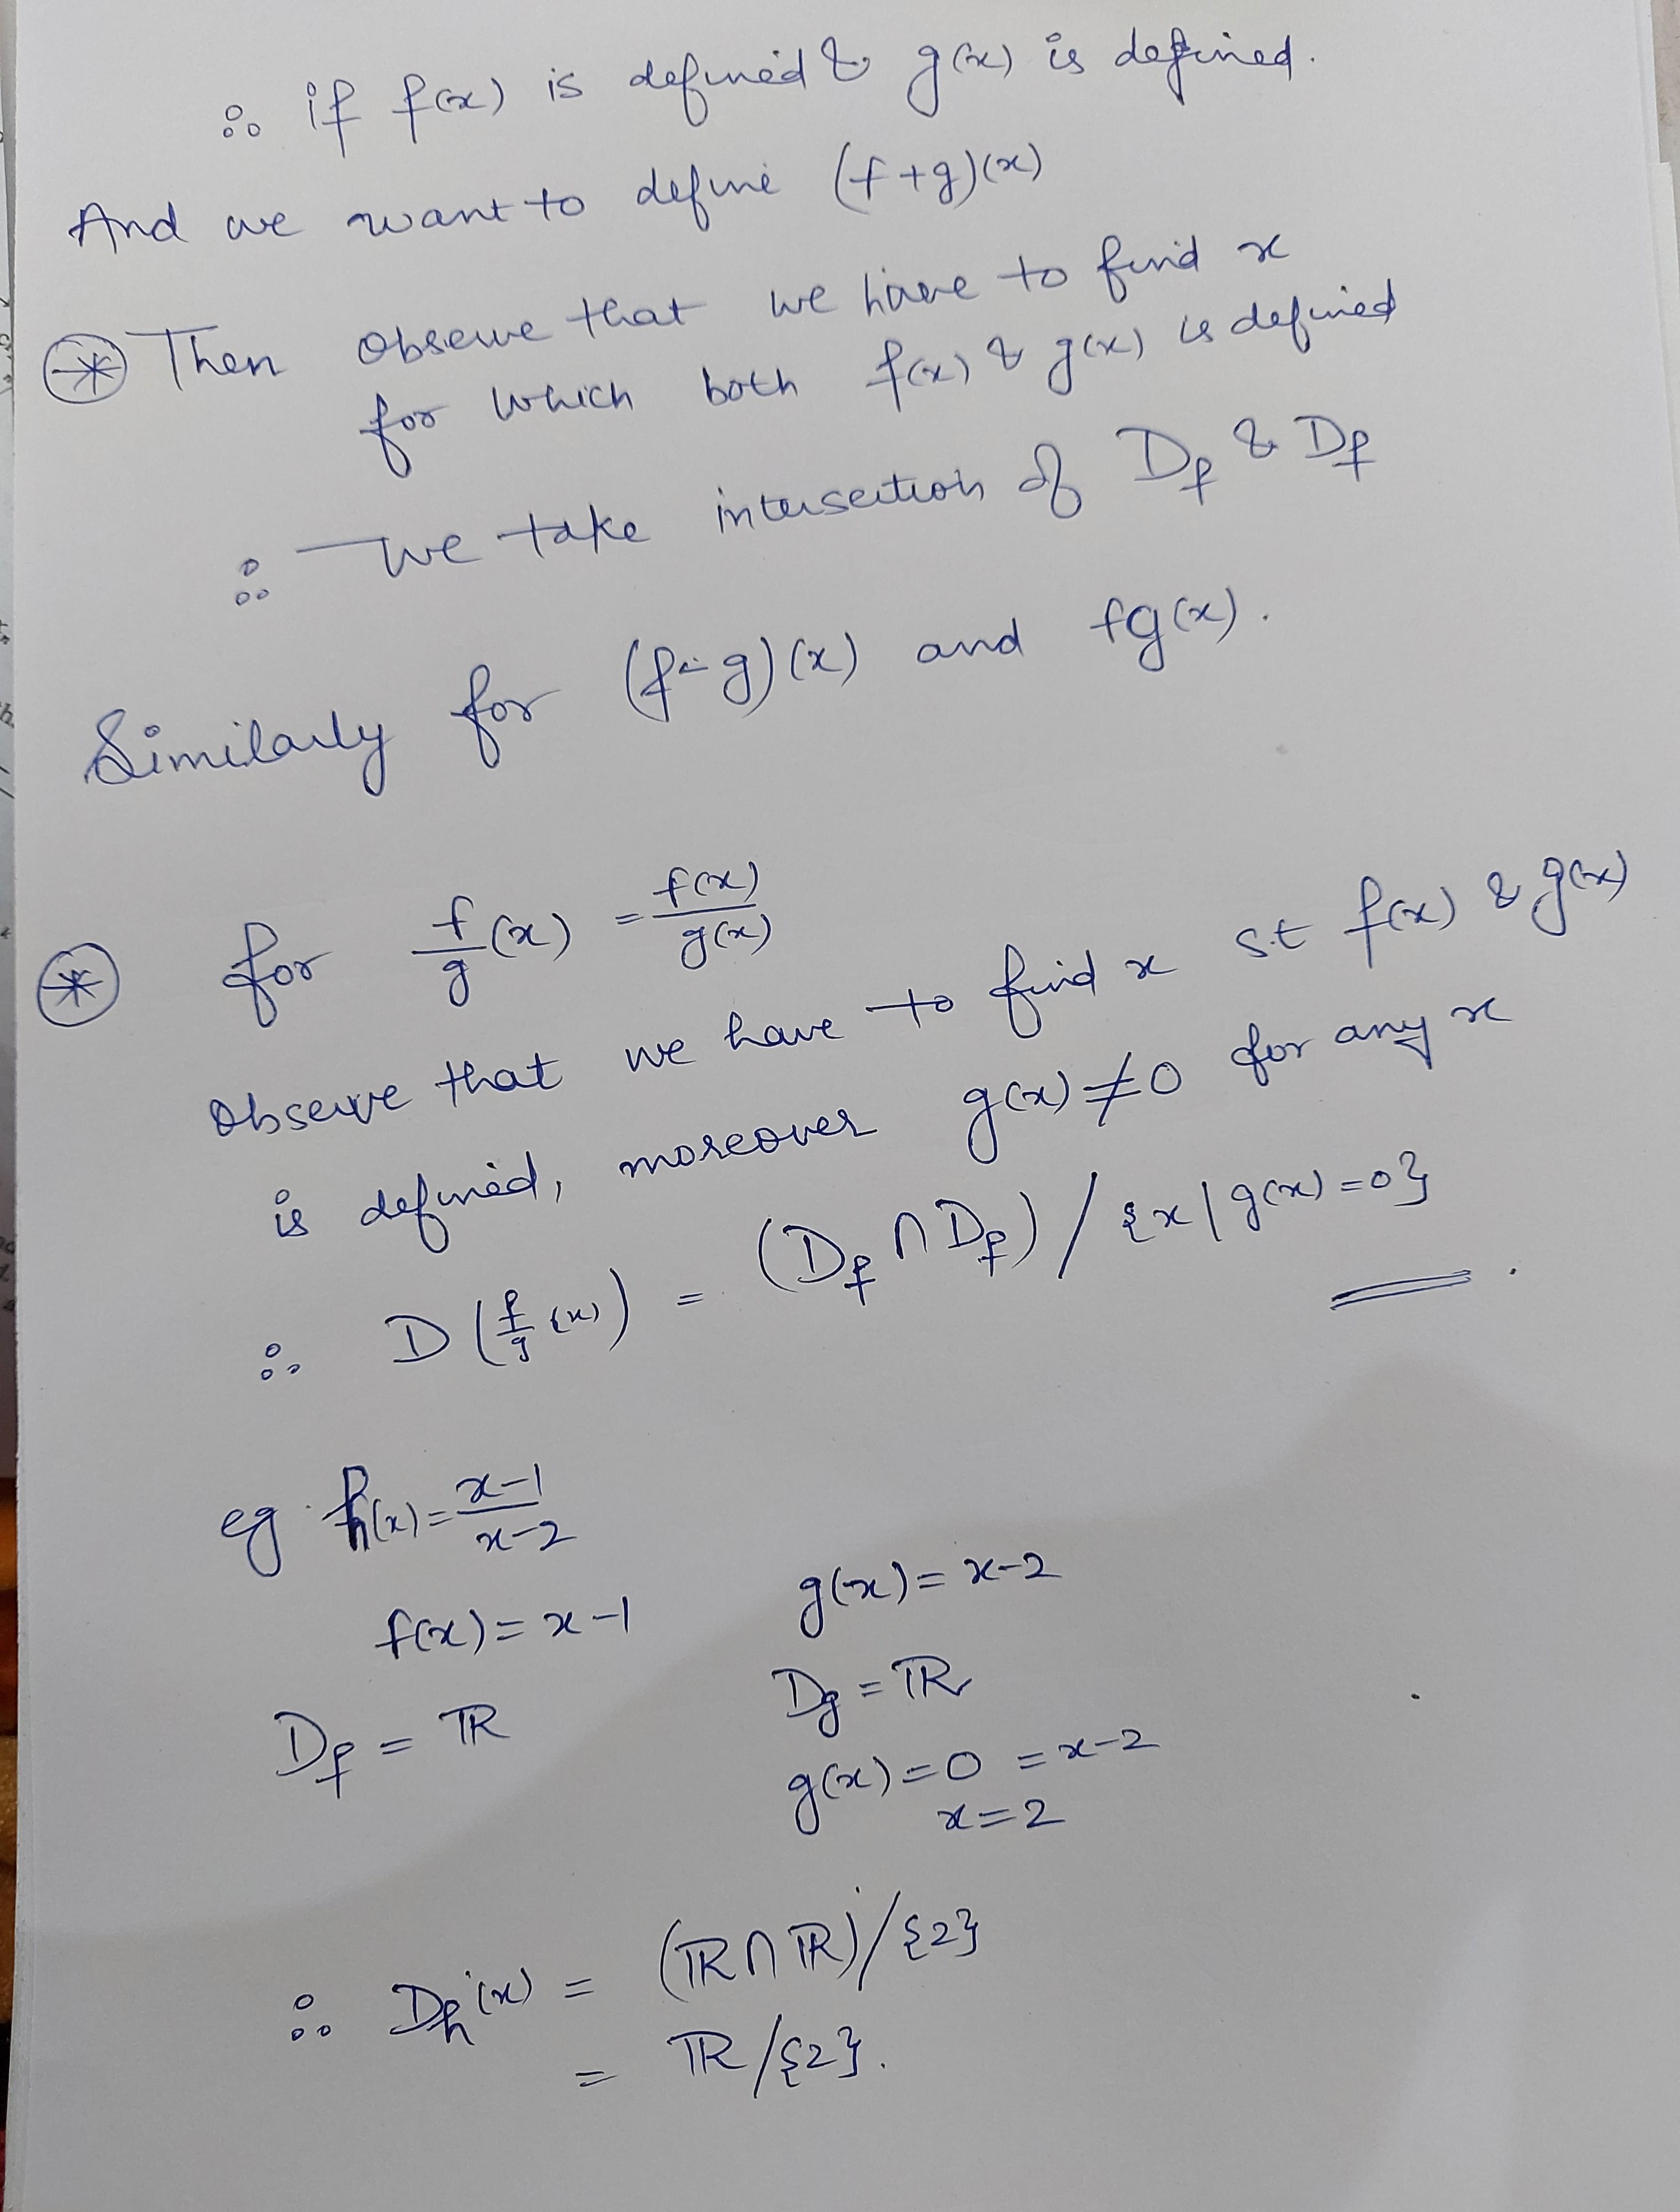 ∴ if f(x) is defined & g(x) is defined.
And we want to define (f+g)(x)
⊛ Then observe that we have to find x
for which both f(x) & g(x) is defined
∴ we take intersection of D_f & D_f
Similarly for (f-g)(x) and fg(x).
⊛ for f/g (x) = f(x)/g(x)
Observe that we have to find x s.t f(x) & g(x)
is defined, moreover g(x) ≠ 0 for any x
∴ D(f/g (x)) = (D_f ∩ D_f) / {x | g(x) = 0}
eg. h(x) = x-1/x-2
f(x) = x-1 g(x) = x-2
D_f = ℝ D_g = ℝ
g(x) = 0 = x-2
x = 2
∴ D_h(x) = (ℝ ∩ ℝ) / {2}
= ℝ / {2}.